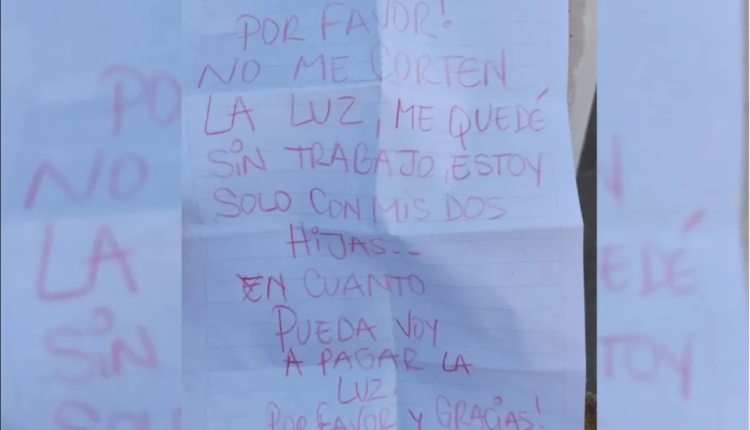 POR FAVOR!
NO ME CORTEN
LA LUZ, ME QUEDÉ
SIN TRABAJO, ESTOY
SOLO CON MIS DOS
HIJAS...
EN CUANTO
PUEDA VOY
A PAGAR LA
LUZ
POR FAVOR Y GRACIAS!